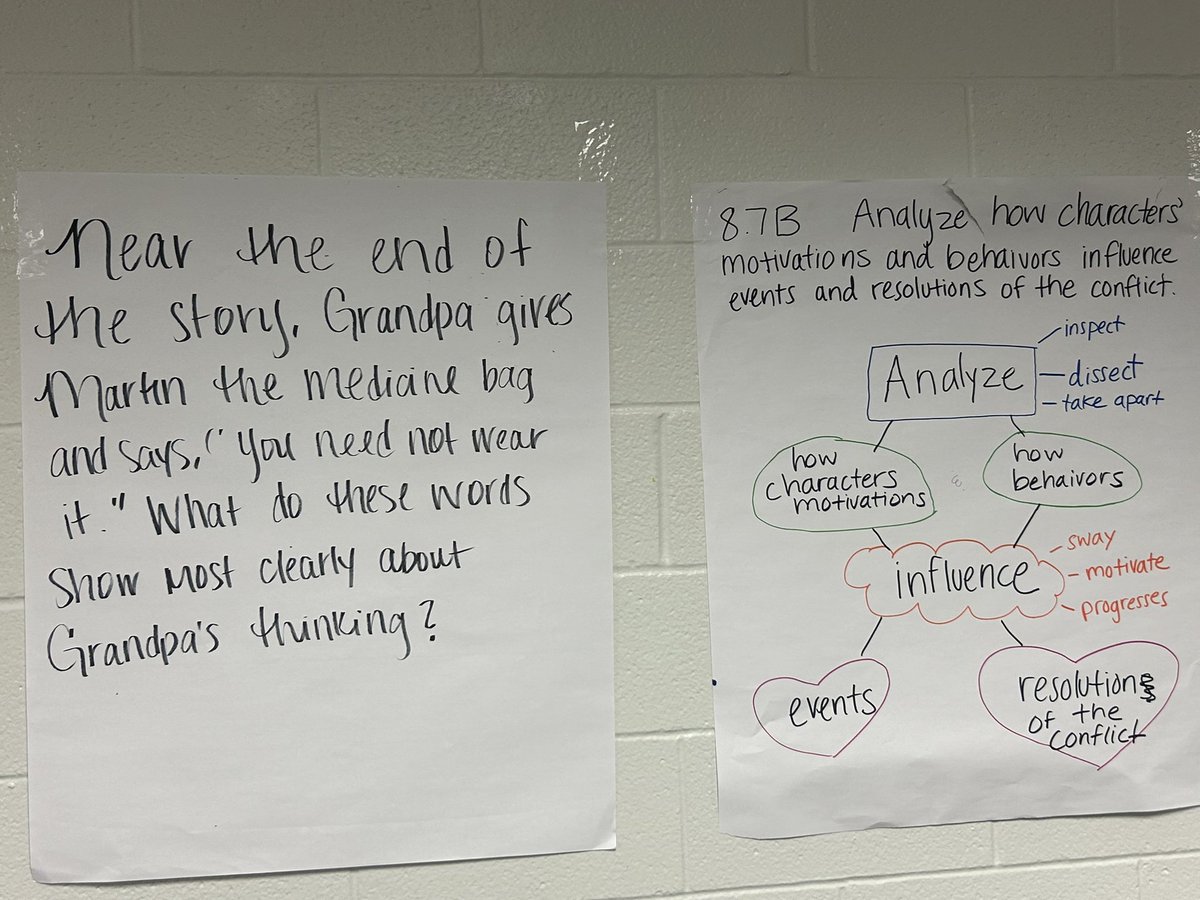 Near the end of
the story, Grandpa gives
Martin the medicine bag
and says, "you need not wear
it." What do these words
show most clearly about
Grandpa's thinking?
8.7B Analyze how characters'
motivations and behaivors influence
events and resolutions of the conflict.
Analyze
inspect
dissect
take apart
how
characters
motivations
how
behaivors
influence
sway
motivate
progresses
events
resolutions
of the
conflict